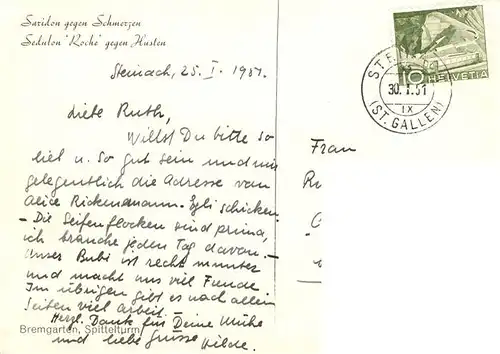 Saridon gegen Schmerzen
Sedulon "Roche" gegen Husten
Steinach, 25. I. 1951.
Liebe Ruth,
Willst Du bitte so
lieb u. so gut sein und mir
gelegentlich die Adresse von
Alice Rickenmann-Egli schicken.
- Die Seifenflocken sind prima,
ich brauche jeden Tag davon. -
Unser Bubi ist recht munter
und macht uns viel Freude
Im übrigen gibt es nach allen
Seiten viel Arbeit.
Herzl. Dank für Deine Mühe
und liebe Grüsse
Hilde.
Bremgarten, Spittelturm
10 HELVETIA
30. I. 51
IX
(ST. GALLEN)
Frau